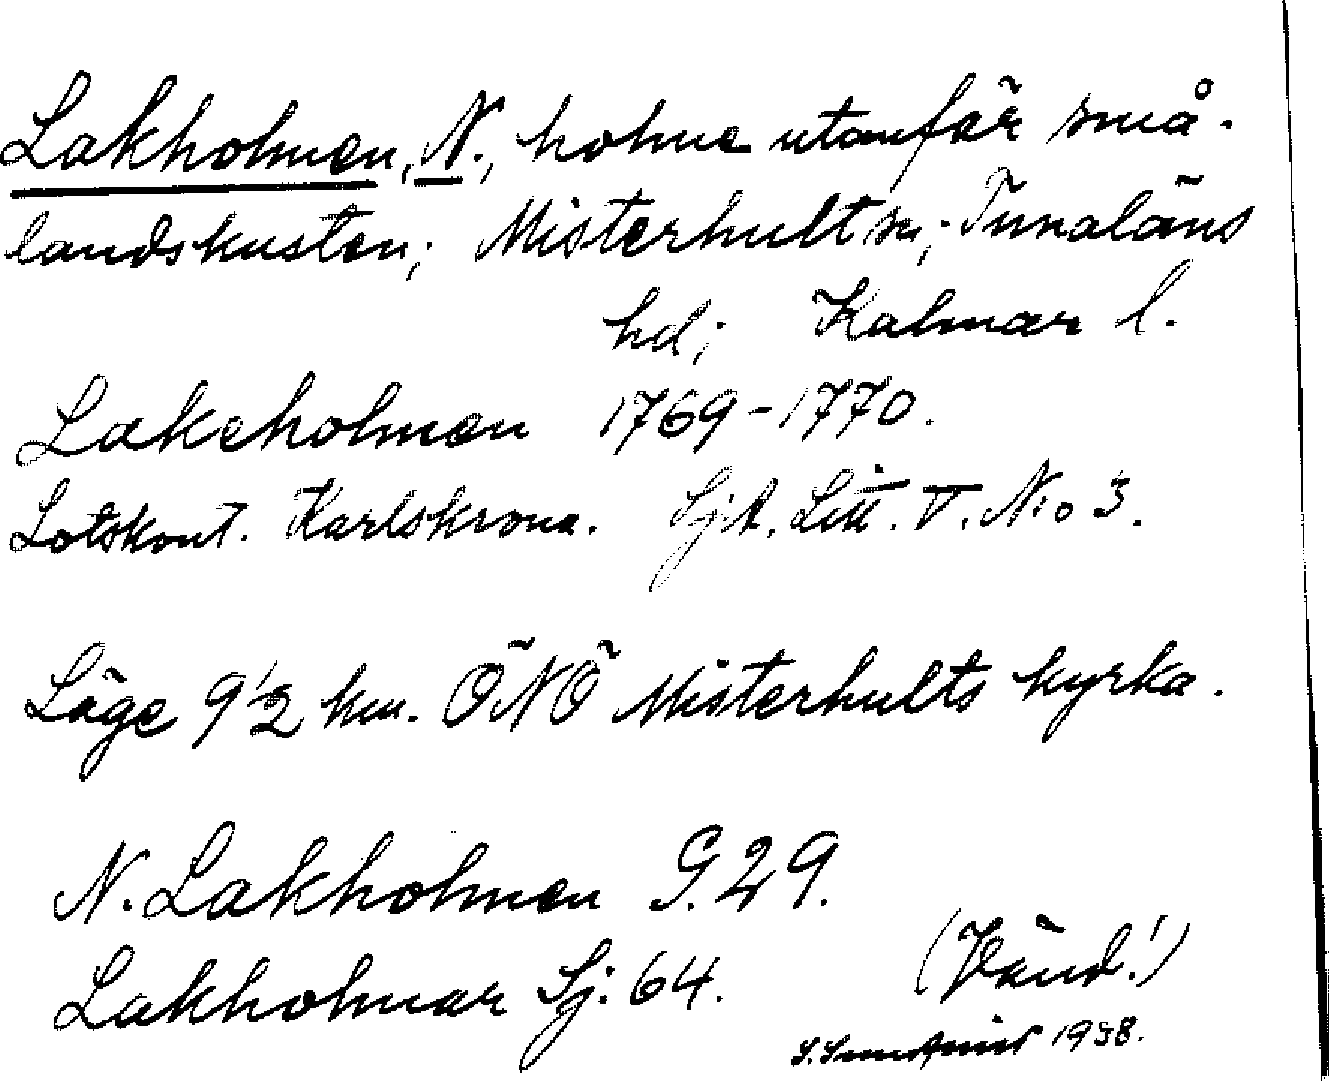 Lakholmen, N., holme utanför små-
landskusten; Misterhult sn; Tunaläns
hd; Kalmar l.
Lakeholmen 1769-1770.
Lotskont. Karlskrona. Sj.A. Litt. V. No 3.
Läge 9 1/2 km. ÖNÖ Misterhults kyrka.
N. Lakholmen G. 29.
Lakholmar Sj. 64.
(Vänd!)
1938.